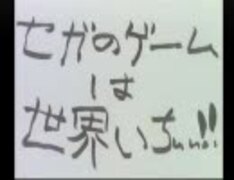 セガのゲーム
は
世界いちぃぃ!!